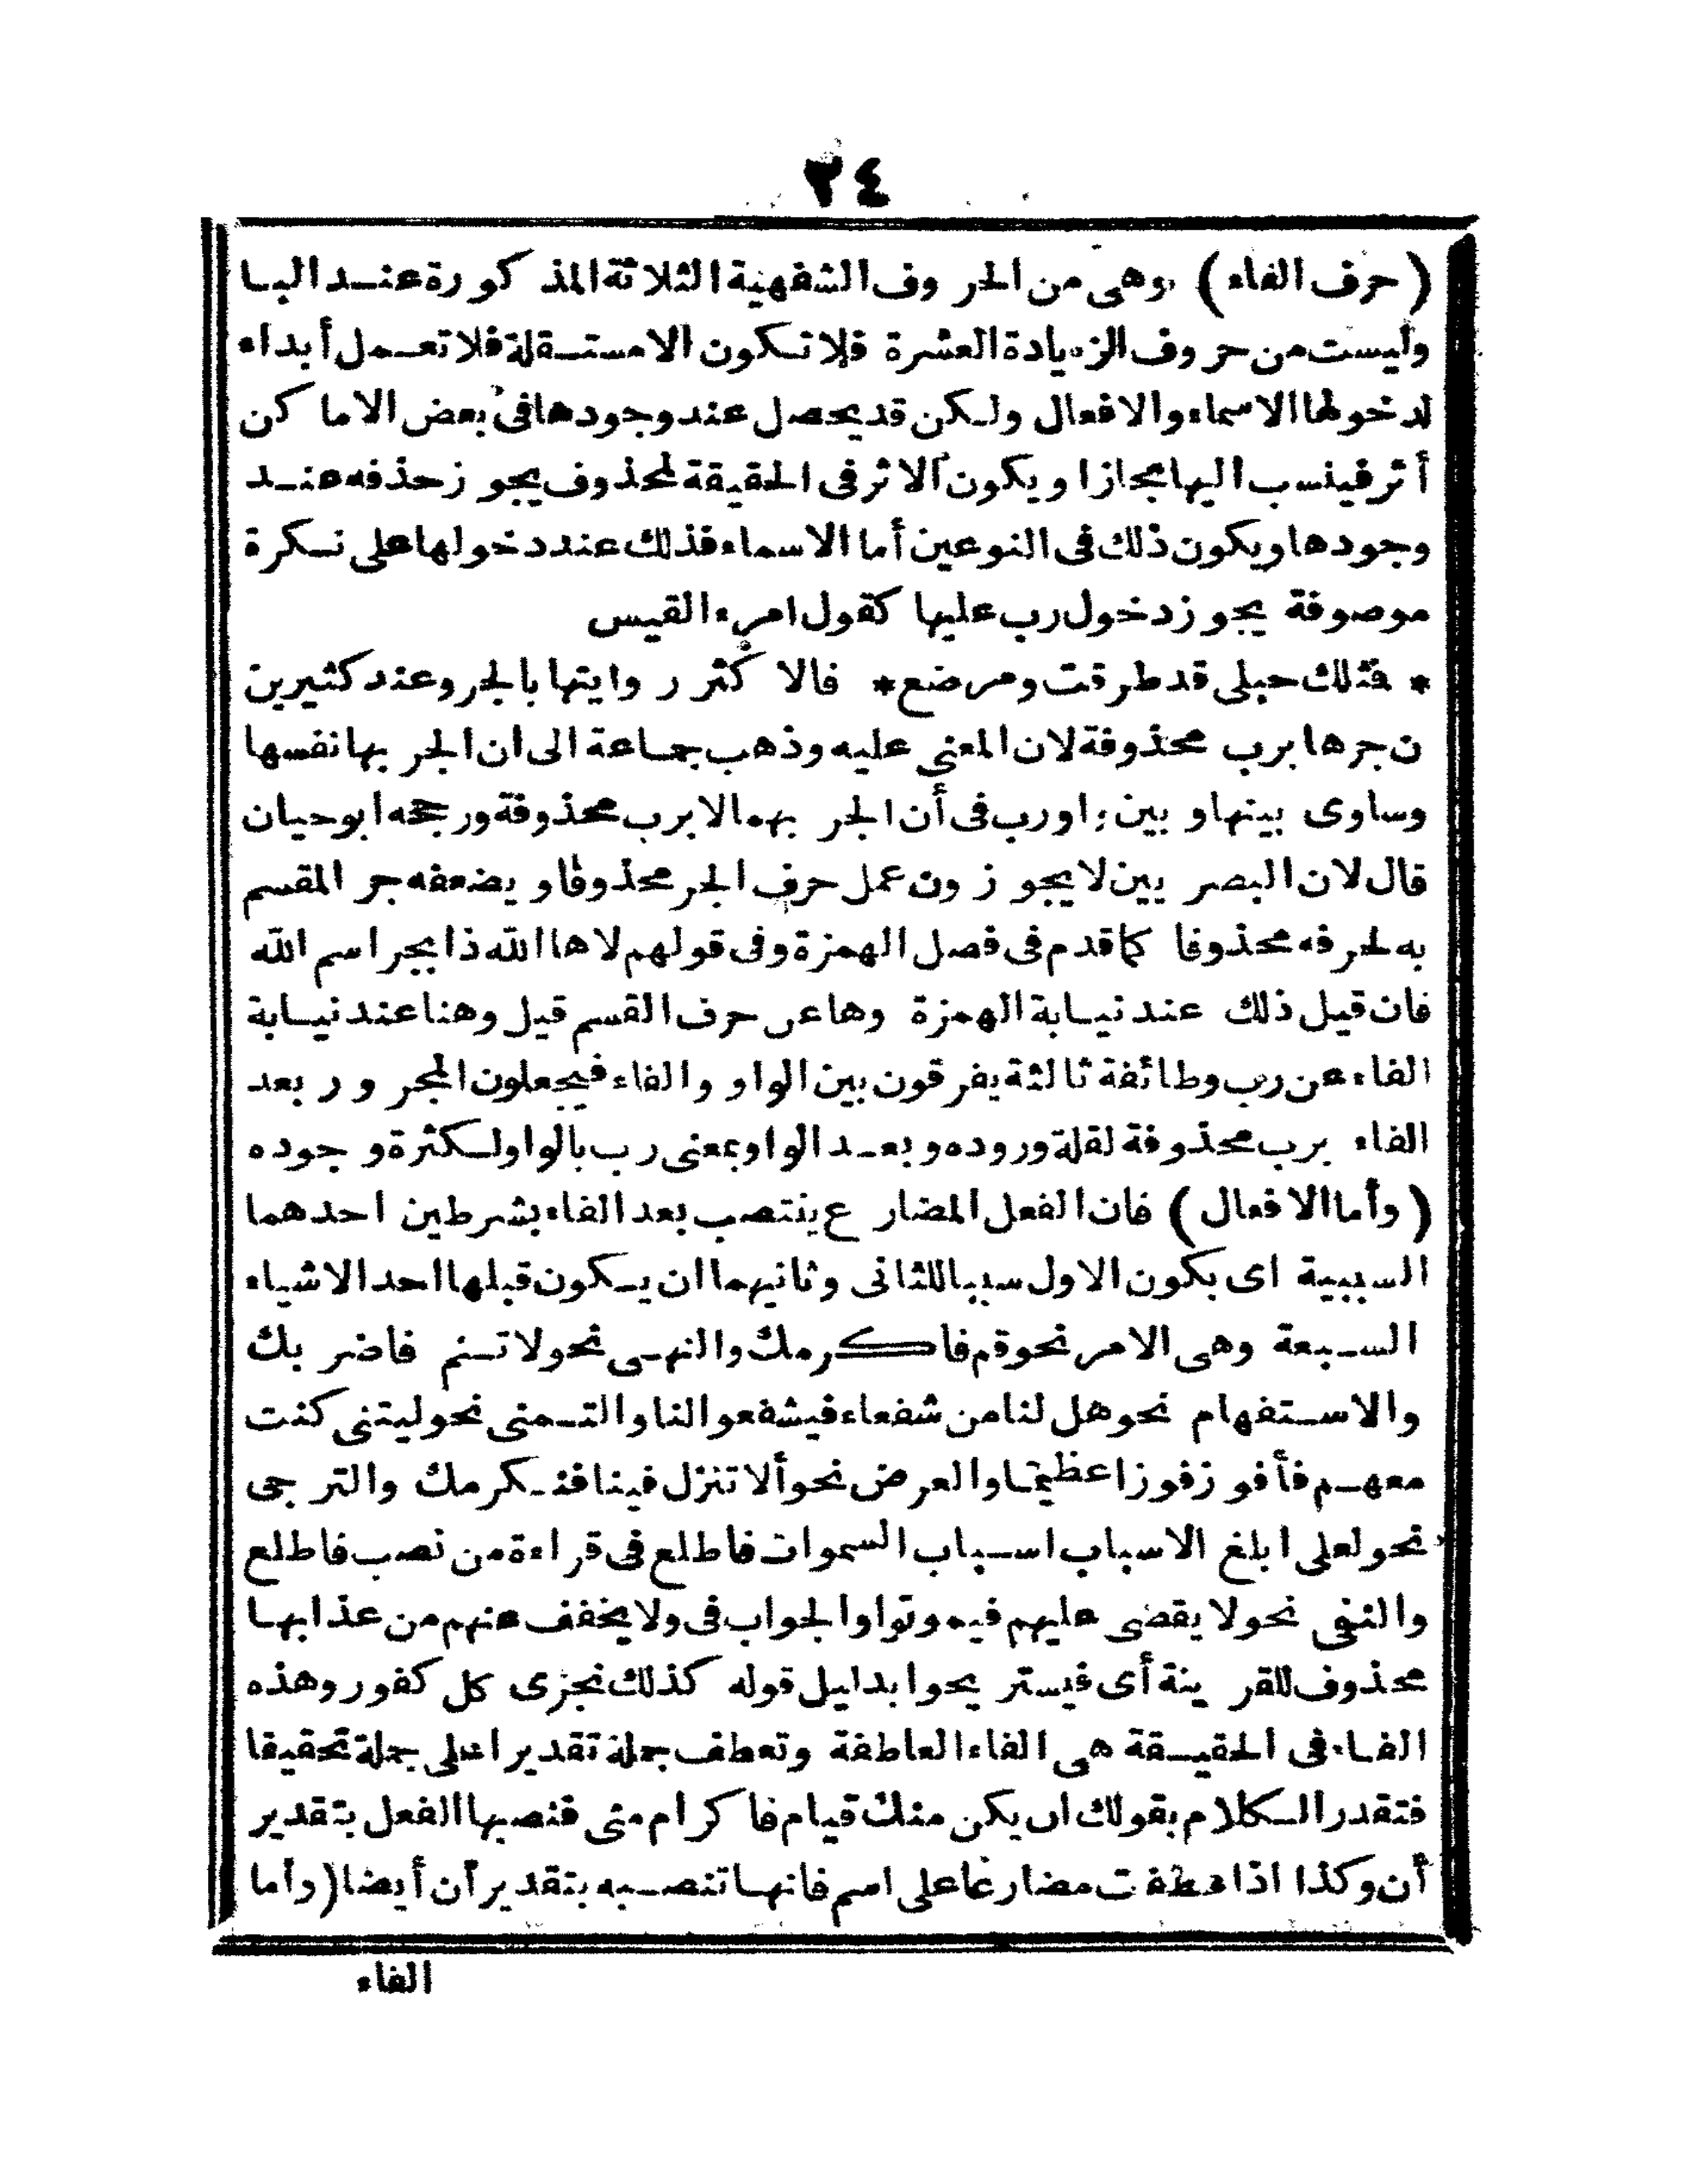 ٣٤
(حرف الفاء) وهى من الحروف الشفهية الثلاثة المذكورة عند البا
وليست من حروف الزيادة العشرة فلا تكون الا مستقلة فلا تعمل أبداء
لدخولها الاسماء والافعال ولكن قد يحصل عند وجودها فى بعض الاماكن
أثر فينسب اليها مجازا ويكون الاثر فى الحقيقة لمحذوف يجوز حذفه عند
وجودها ويكون ذلك فى النوعين أما الاسماء فذلك عند دخولها على نكرة
موصوفة يجوز دخول رب عليها كقول امرء القيس
* فمثلك حبلى قد طرقت ومرضع * فالاكثر روايتها بالجر وعند كثيرين
ن جرها برب محذوفة لان المعنى عليه وذهب جماعة الى ان الجر بها نفسها
وساوى بينها وبين واورب فى أن الجر بهما لا برب محذوفة ورجحه ابو حيان
قال لان البصريين لا يجوزون عمل حرف الجر محذوفا ويضعفه جر المقسم
به لحرفه محذوفا كما قدم فى فصل الهمزة وفى قولهم لاها الله ذا بجر اسم الله
فان قيل ذلك عند نيابة الهمزة وها عن حرف القسم قيل وهنا عند نيابة
الفاء عن رب وطائفة ثالثة يفرقون بين الواو والفاء فيجعلون المجرور بعد
الفاء برب محذوفة لقلة وروده وبعد الواو بمعنى رب بالواو لكثرة وجوده
(وأما الافعال) فان الفعل المضارع ينتصب بعد الفاء بشرطين احدهما
السببية اى يكون الاول سببا للثانى وثانيهما ان يكون قبلها احد الاشياء
السبعة وهى الامر نحو قم فاكرمك والنهى نحو لا تنم فاضربك
والاستفهام نحو هل لنا من شفعاء فيشفعوا لنا والتمنى نحو ليتنى كنت
معهم فأفوز فوزا عظيما والعرض نحو ألا تنزل فينا فنكرمك والترجى
نحو لعلى ابلغ الاسباب اسباب السموات فاطلع فى قراءة من نصب فاطلع
والنفى نحو لا يقضى عليهم فيموتوا والجواب فى ولا يخفف عنهم من عذابها
محذوف للقرينة أى فيستريحوا بدليل قوله كذلك نجزى كل كفور وهذه
الفاء فى الحقيقة هى الفاء العاطفة وتعطف جملة تقديرا على جملة تحقيقا
فتقدر الكلام بقولك ان يكن منك قيام فاكرام منى فنصبها الفعل بتقدير
أن وكذا اذا عطفت مضارعا على اسم فانها تنصبه بتقدير أن أيضا (وأما
الفاء